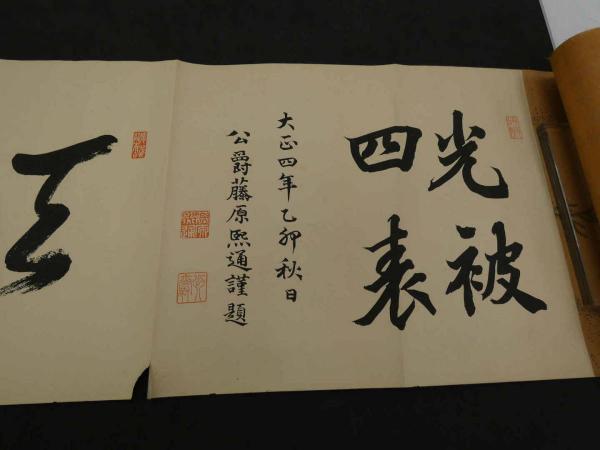 光被
四表
大正四年乙卯秋日
公爵藤原熙通謹題